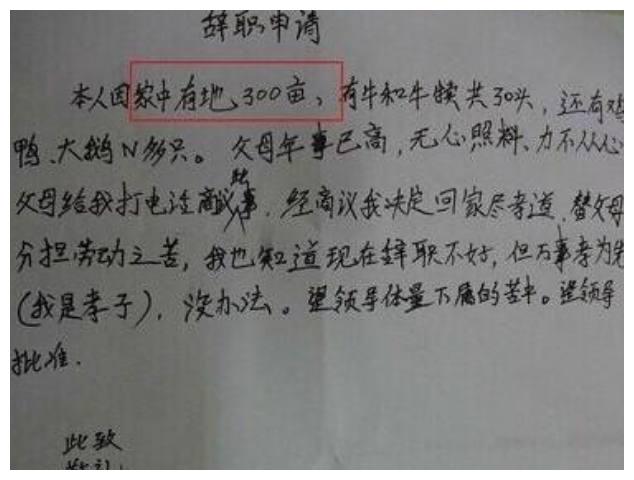 辞职申请
本人因家中有地300亩,有牛和牛犊共30头,还有鸡
鸭、大鹅N多只。父母年事已高,无心照料、力不从心
父母给我打电话商议此事,经商议我决定回家尽孝道,替父母
分担劳动之苦,我也知道现在辞职不好,但万事孝为先
(我是孝子),没办法。望领导体量下属的苦中。望领导
批准.
此致
敬礼